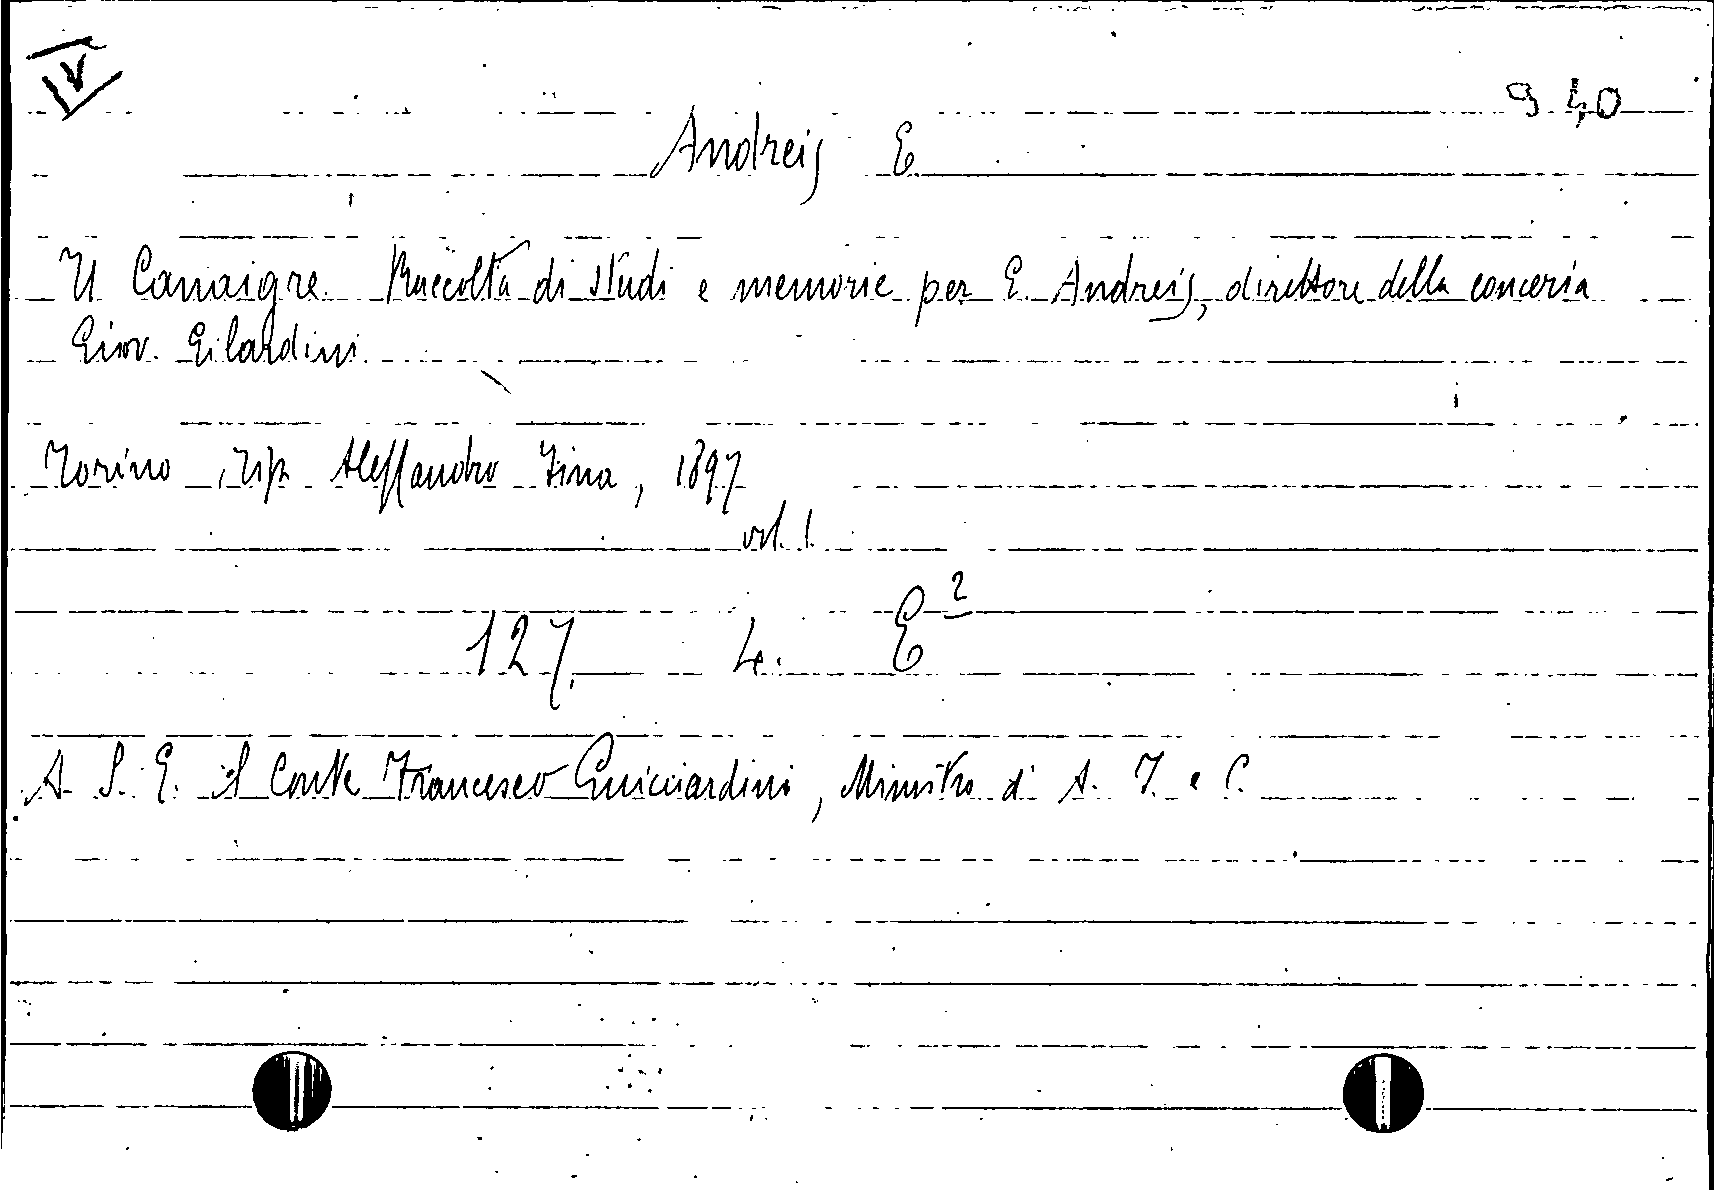 IV
940
Andreis E.
Il Canaigre. Raccolta di studi e memorie per E. Andreis, direttore della conceria
Giov. Gilardini.
Torino, Tip. Alessandro Fina, 1897
vol. 1.
127. 4. E²
A S. E. il Conte Francesco Guicciardini, Ministro d' A. I. e C.